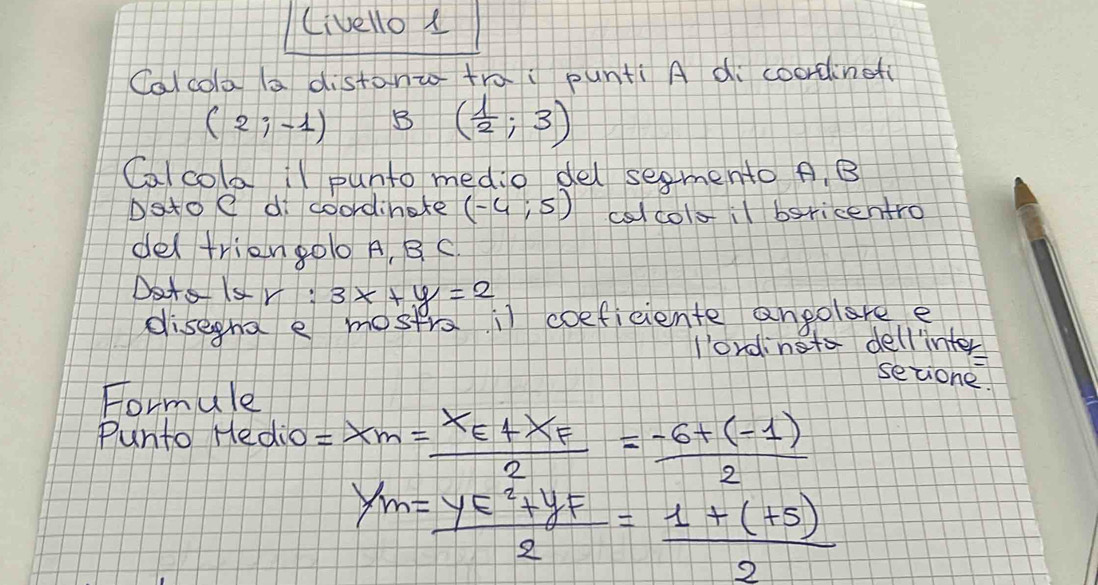 Livello 1
Calcola la distanza tra i punti A di coordinati
(2;-1) B (1/2; 3)
Calcola il punto medio del segmento A, B
Dato C di coordinate (-4;5) calcola il baricentro
del triangolo A, B, C.
Data la r : 3x+y=2
disegna e mostra il coeficiente angolare e
l'ordinata dell'inter=
sezione.
Formule
Punto Medio = Xm = (XE + XF)/2 = (-6+(-1))/2
Ym = (yE²+yF)/2 = (1+(+5))/2